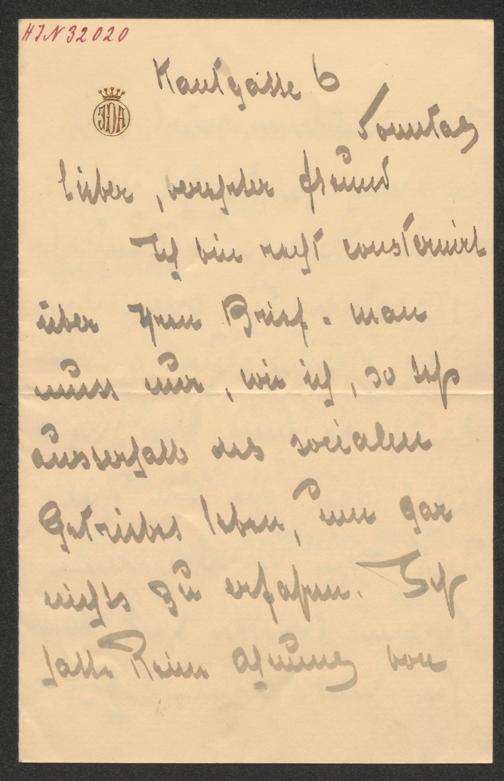 HIN 32020
Kantgasse 6
Sonntag
lieber, verehrter Freund
Ich bin recht consternirt
über Ihren Brief - man
muss nur, wie ich, so sehr
ausserhalb des socialen
Getriebes leben, um gar
nichts zu erfahren. Ich
hatte keine Ahnung von